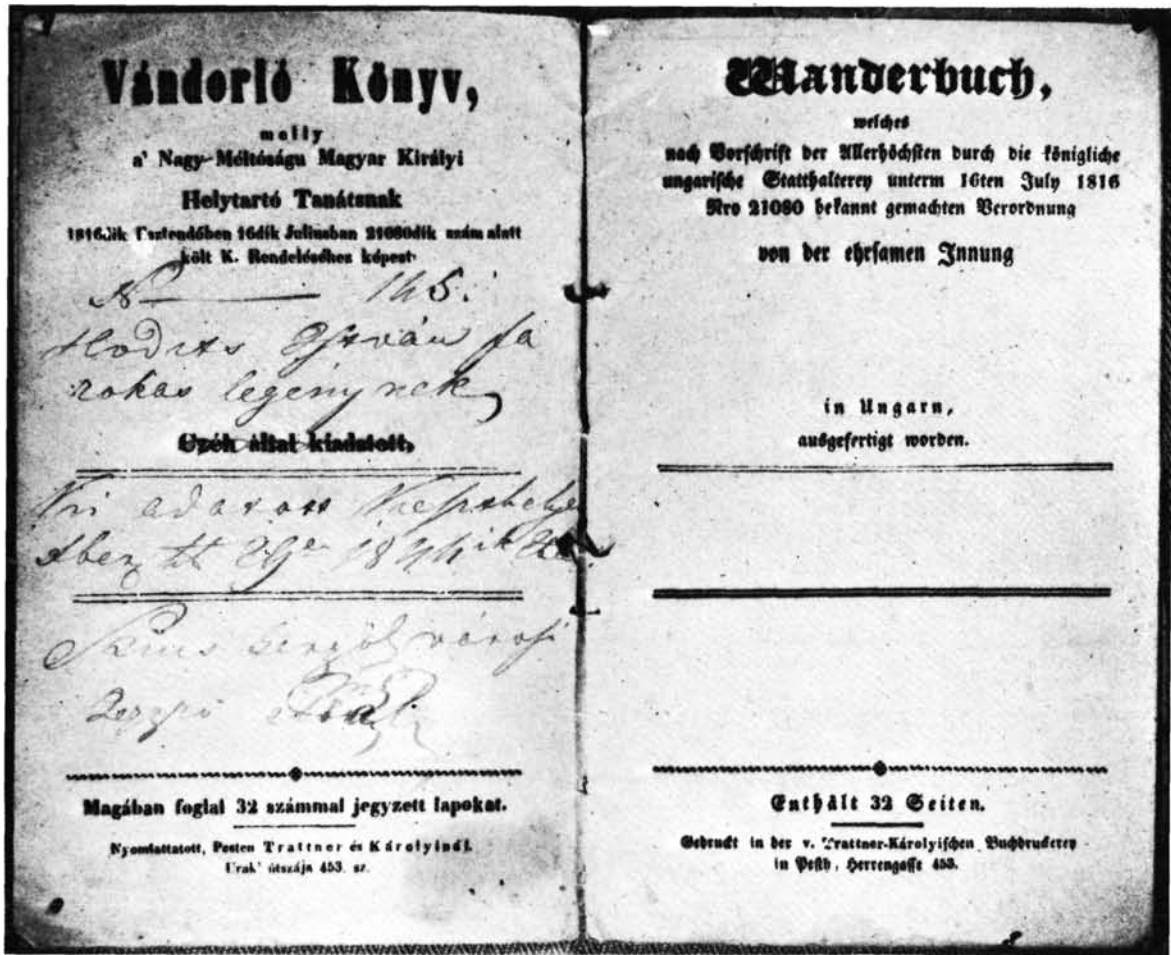 Vándorló Könyv,
melly
a' Nagy-Méltóságu Magyar Királyi
Helytartó Tanátsnak
1816dik Esztendőben 16dik Juliusban 21080dik szám alatt
költ K. Rendeléséhez képest
N 145.
Hodits István fa
zokas legénynek
Czéh által kiadatott,
városi
Magában foglal 32 számmal jegyzett lapokat.
Nyomtattatott, Pesten Trattner és Károlyinál.
Urak' útszája 453. sz.
Wanderbuch,
welches
nach Vorschrift der Allerhöchsten durch die königliche
ungarische Statthalterey unterm 16ten July 1816
Nro 21080 bekannt gemachten Verordnung
von der ehrsamen Innung
in Ungarn,
ausgefertigt worden.
Enthält 32 Seiten.
Gedruckt in der v. Trattner-Károlyischen Buchdruckerey
in Pesth, Herrengasse 453.